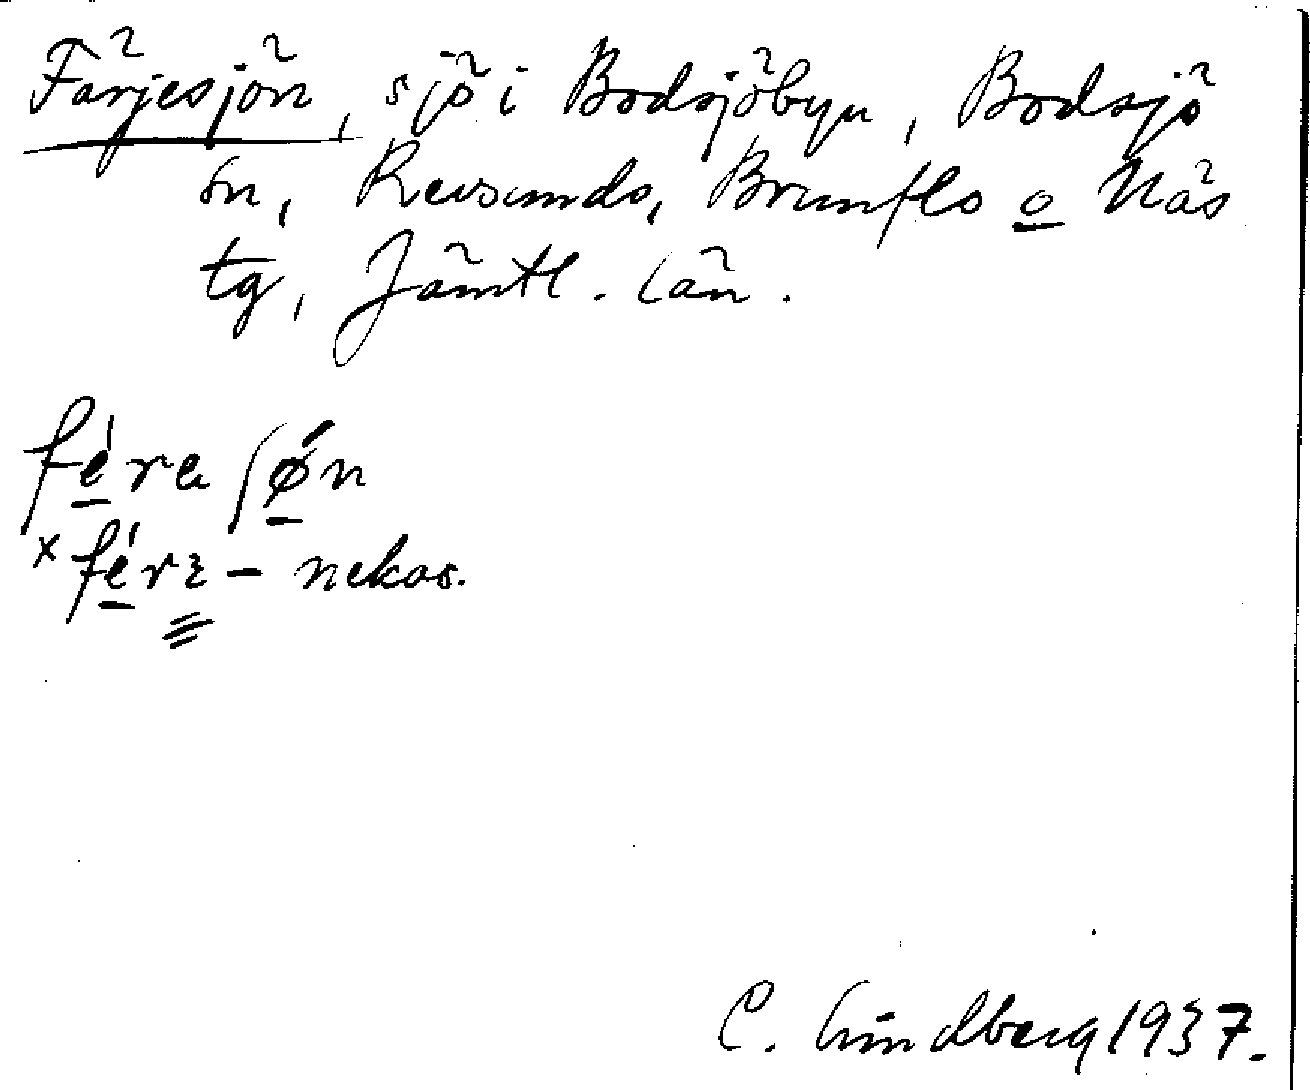 Färjesjön, sjö i Bodsjöbyn, Bodsjö
sn, Revsunds, Brunflo o Näs
tg, Jämtl. län.
fé̱re ʃǿ̱n
× fé̱rɛ – nekas.
C. Lindberg 1937.